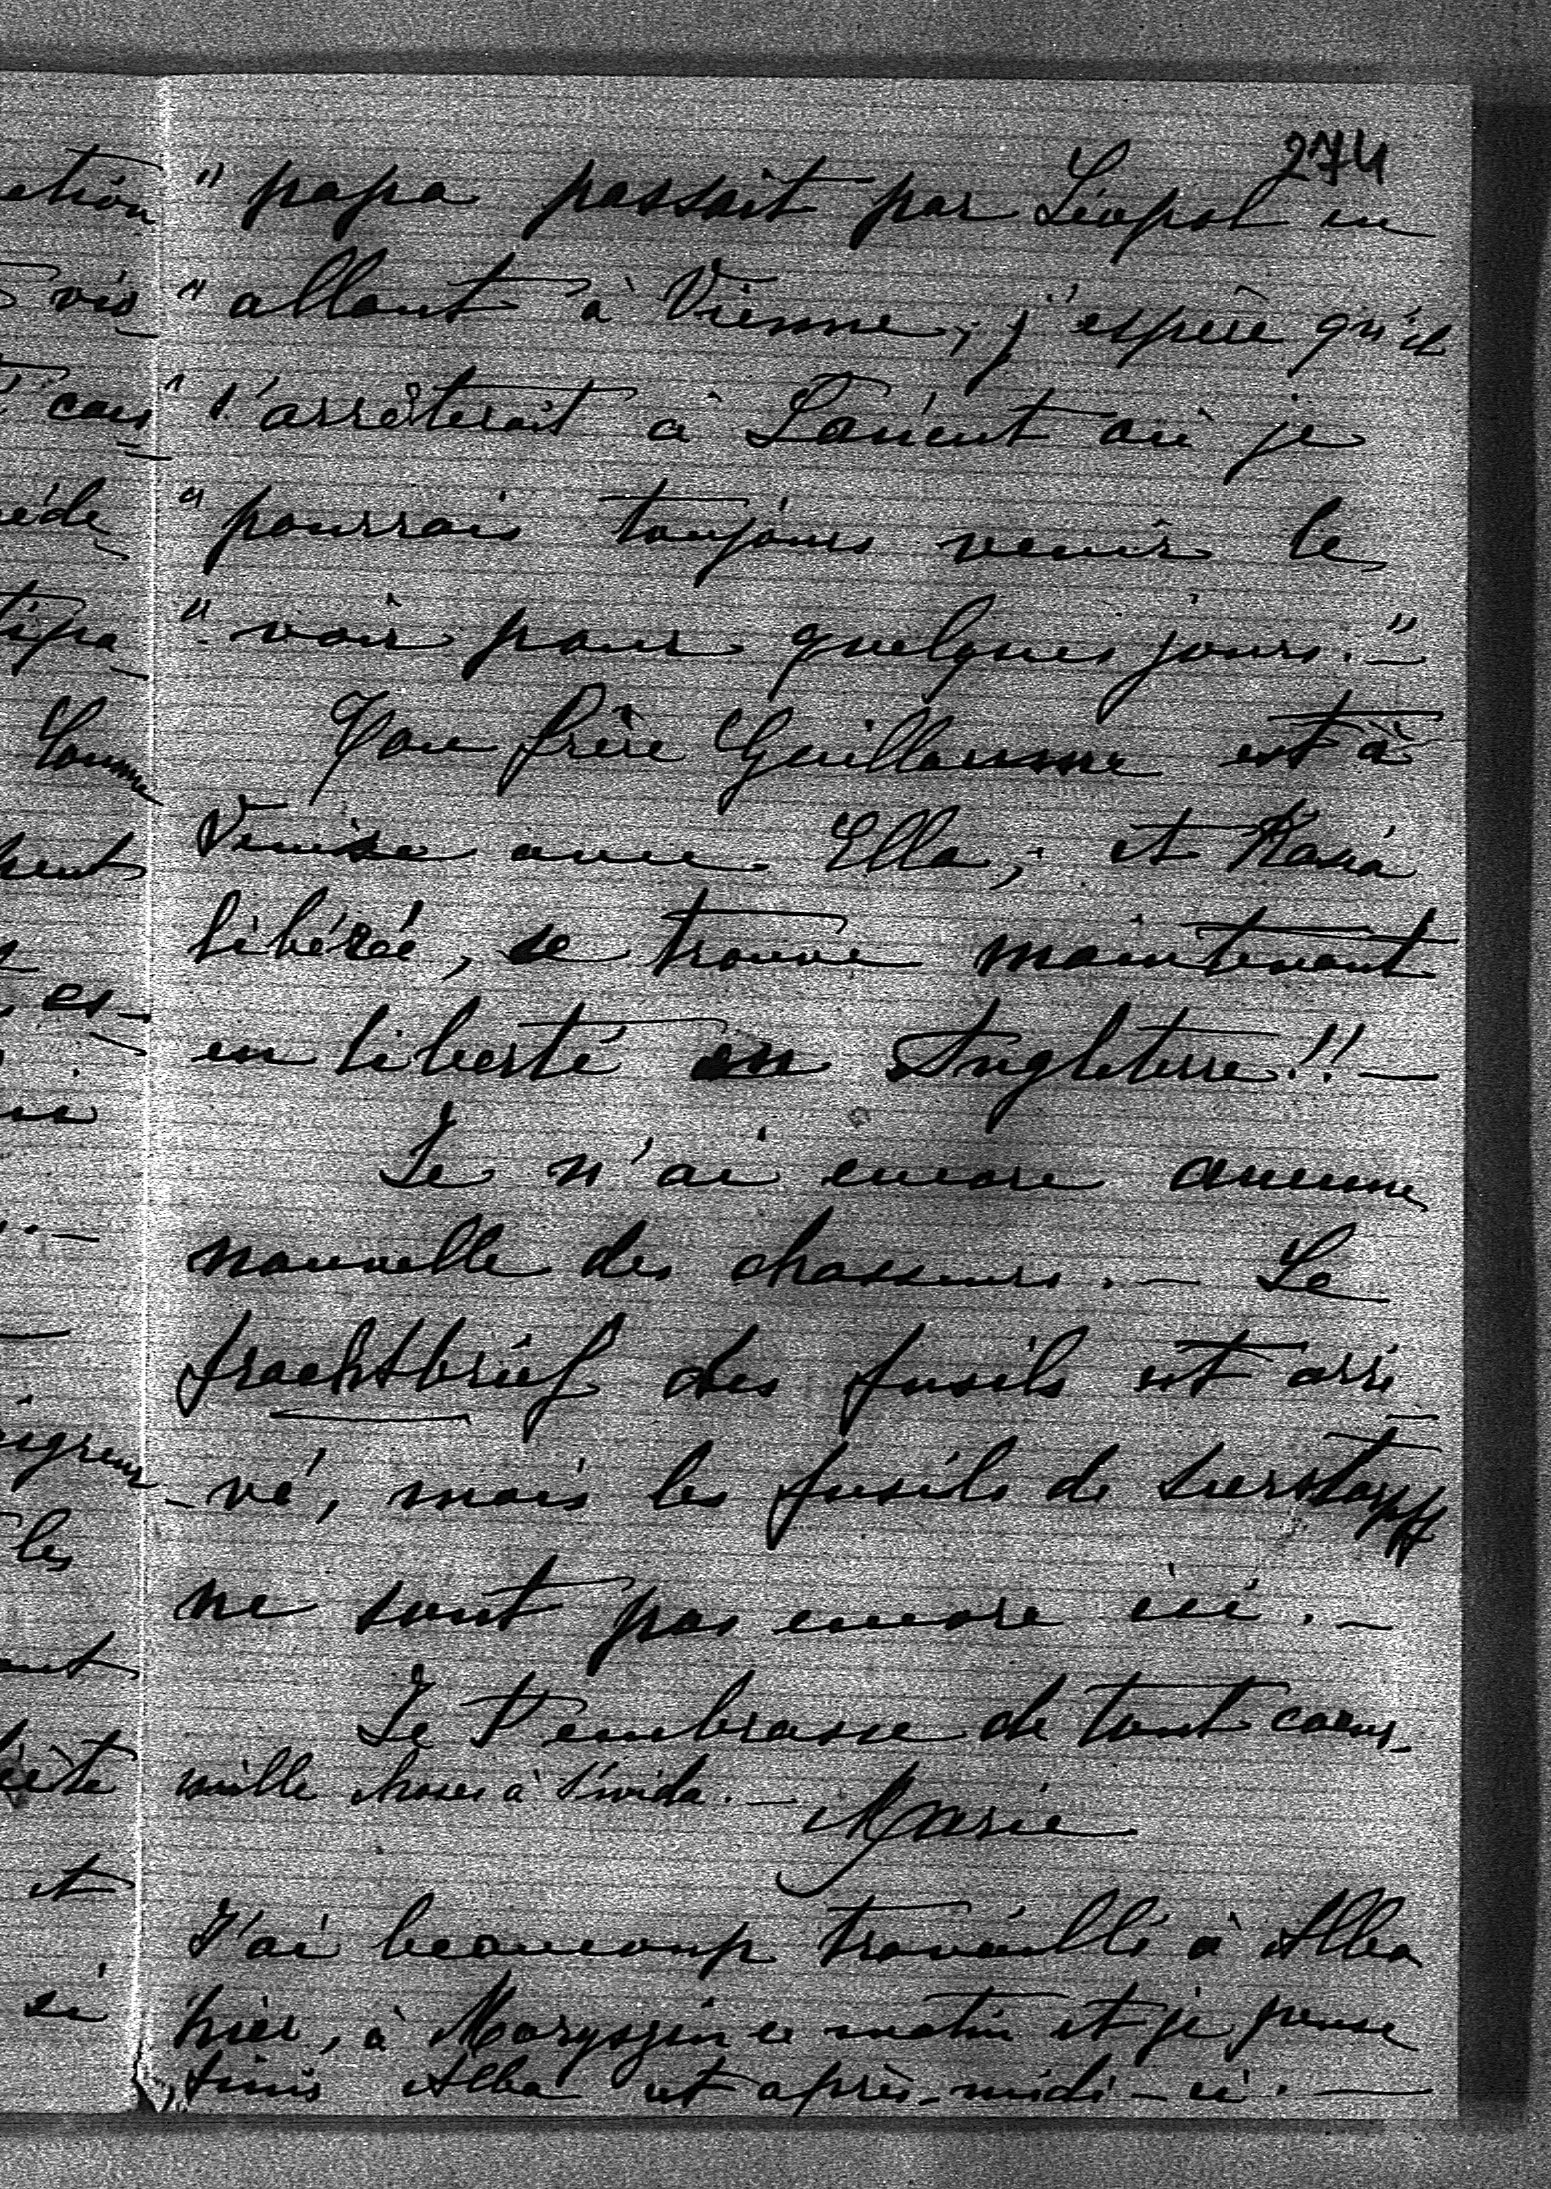 274
" papa passait par Léopol en
" allant à Vienne, j'espère qu'il
" s'arrêterait à Łańcut où je
" pourrais toujours venir le
" voir pour quelques jours." —
Ton frère Guillaume est à
Venise avec Ella, et Kasia
libérée, se trouve maintenant
en liberté en Angleterre!! —
Je n'ai encore aucune
nouvelle des chasseurs. — Le
frachtbrief des fusils est arri
-vé, mais les fusils de Sierstorpff
ne sont pas encore ici. —
Je t'embrasse de tout coeur
mille choses à —
Marie
J'ai beaucoup travaillé à Alba
hier, à Maryszin ce matin et je pense
finir Alba cet après-midi-ci. —